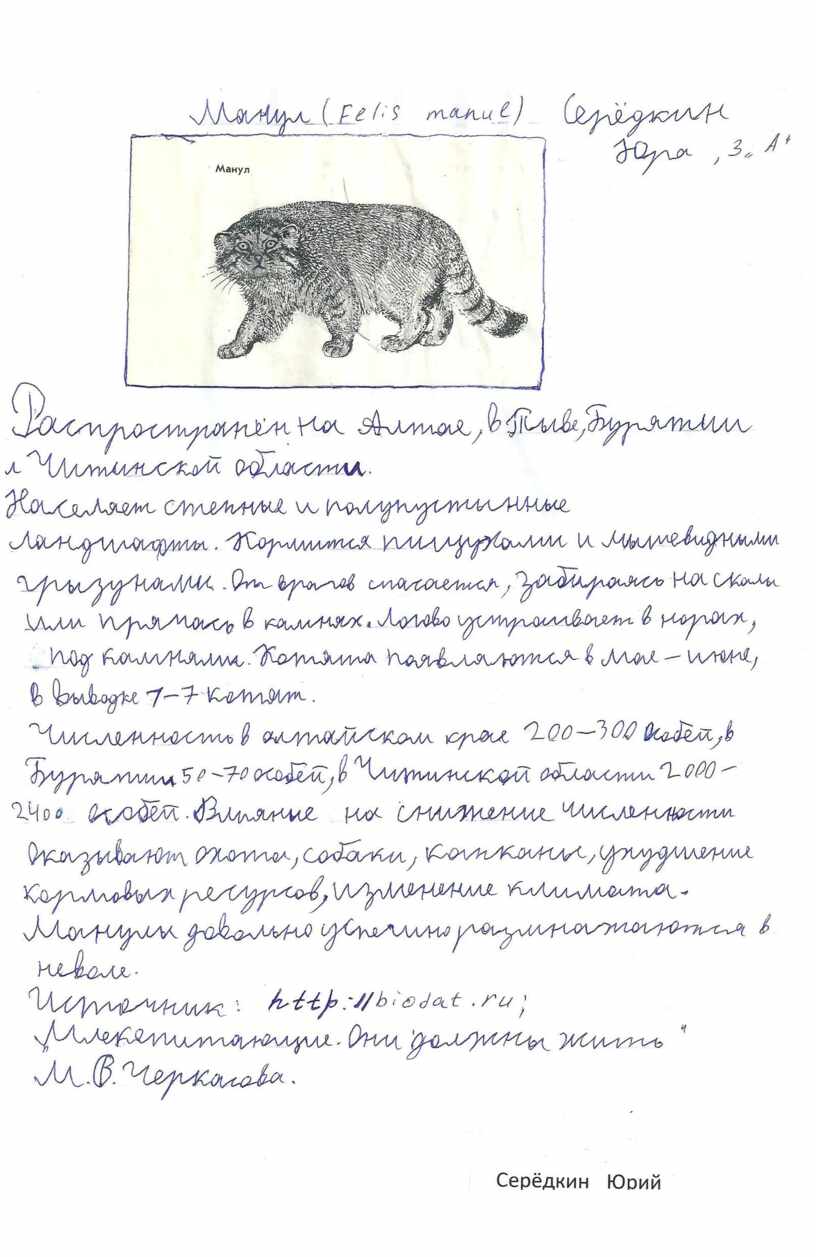 Манул (Felis manul) Серёдкин
Юра, 3 „А"
Манул
Распространён на Алтае, в Тыве, Бурятии
и Читинской области.
Населяет степные и полупустынные
ландшафты. Кормится пищухами и мышевидными
грызунами. От врагов спасается, забираясь на скалы
или прячась в камнях. Логово устраивает в норах,
под камнями. Котята появляются в мае – июне,
в выводке 1–7 котят.
Численность в алтайском крае 200–300 особей, в
Бурятии 50–70 особей, в Читинской области 2000–
2400 особей. Влияние на снижение численности
оказывают охота, собаки, капканы, ухудшение
кормовых ресурсов, изменение климата.
Манулы довольно успешно размножаются в
неволе.
Источник: http://biodat.ru;
„Млекопитающие. Они должны жить"
М.В. Черкасова.
Серёдкин Юрий